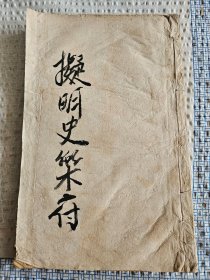 擬明史樂府